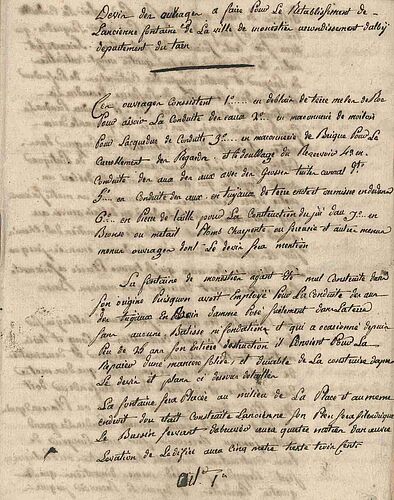 Devis des ouvrages a faire Pour Le Rétablissement de
Lancienne fontaine de La ville de monestier arrondissement dalby
departement du tarn
Ces ouvrages Consistent 1°... en deblais de terre melée de Roc
Pour assoir La Conduite des eaux 2°... en maconnerie de moilon
Pour Lacqueduc de Conduite 3°... en maconnerie de Brique Pour Le
Carrellement des Regards et le doublage du Reservoir 4° en
Conduite des eaux avec des Grosses tuiles canal
5°... en Conduite des eaux en tuyaux de terre cuite et
6°... en Pierre de taille pour La Construction du jet dau 7°... en
Bronse ou métail Plomb Charpente ou ferrerie et autres menus
menus ouvrages dont Le devis fera mention
La fontaine de monestier ayant été mal Construite dans
son origine Puisquon avoit Employé Pour La Conduite des eaux
des tuyaux en Bois damme Posé seulement dans La terre
sans aucune Batisse ni fondations et qui a ocasionné depuis
Peu de ans son entiere destruction il Convient Pour La
Reparer dune maniere solide et durable de La construire dapres
Le devis et plans ci dessus detailles
La fontaine sera Placée au milieu de La Place et au meme
endroit dou etait Construite Lancienne son Plan sera
Le Bassin servant dabreuvoir aura quatre metres dans
Levation de Lédifice aura Cinq metres trente trois Cents